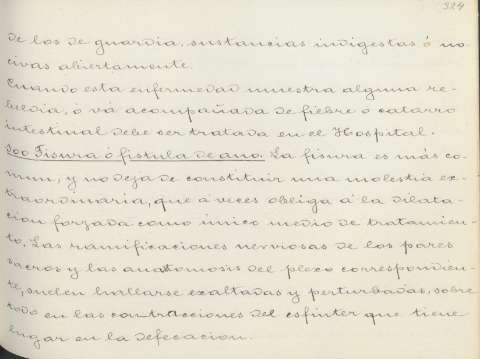 324
de los de guardia, sustancias indigestas ó no-
civas abiertamente.
Cuando esta enfermedad muestra alguna re-
beldia, ó vá acompañada de fiebre o catarro
intestinal debe ser tratada en el Hospital.
200 Fisura ó fistula de ano. La fisura es más co-
mun, y no deja de constituir una molestia ex-
traordinaria, que a veces obliga á la dilata-
cion forzada como único medio de tratamien-
to. Las ramificaciones nerviosas de los pares
sacros y las anatomosis del plexo correspondien-
te, suelen hallarse exaltadas y perturbadas, sobre
todo en las contracciones del esfinter que tiene
lugar en la defecacion.